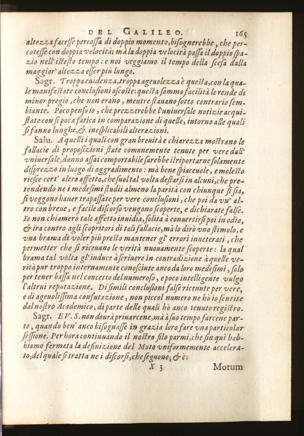 DEL GALILEO. 165
altezza facesse percossa di doppio momento, bisognerebbe, che per-
cotesse con doppia velocità; mà la doppia velocità passa il doppio spa-
zio nell'istesso tempo: e noi veggiamo il tempo della scesa dalla
maggior' altezza esser più lungo.
Sagr. Troppa euidenza, troppa ageuolezza è questa, con la qua-
le manifestate conclusioni ascoste: questa somma facilità le rende di
minor pregio, che non erano, mentre stauano sotto contrario sem-
biante. Poco penso io, che prezzerebbe l'vniuersale notizie acqui-
state con sì poca fatica in comparazione di quelle, intorno alle quali
si fanno lunghe, & inesplicabili altercazioni.
Salu. A quelli i quali con gran breuità e chiarezza mostrano le
fallacie di proposizioni state comunemente tenute per vere dall'
vniuersale, danno assai comportabile sarebbe il riportarne solamente
disprezzo in luogo di aggradimento: mà bene spiaceuole, e molesto
riesce cert' altro affetto, che suol tal volta destarsi in alcuni, che pre-
tendendo ne i medesimi studii almeno la parità con chiunque si sia,
si veggono hauer trapassate per vere conclusioni, che poi da vn' al-
tro con breue, e facile discorso vengono scoperte, e dichiarate false.
Io non chiamerò tale affetto inuidia, solita à conuertirsi poi in odio,
& ira contro agli scopritori di tali fallacie, mà lo dirò vno stimolo, e
vna brama di voler più presto mantener gl' errori inueterati, che
permetter che si riceuano le verità nuouamente scoperte: la qual
brama tal volta gl' induce à scriuere in contradizione à quelle ve-
rità pur troppo internamente conosciute anco da loro medesimi, solo
per tener bassa nel concetto del numeroso, e poco intelligente vulgo
l'altrui reputazione. Di simili conclusioni false riceuute per vere,
e di ageuolissima confutazione, non piccol numero ne hò io sentite
dal nostro Academico, di parte delle quali hò anco tenuto registro.
Sagr. E V. S. non dourà priuarcene, mà à suo tempo farcene par-
te, quando ben' anco bisognasse in grazia loro fare vna particolar
sessione. Per hora continuando il nostro filo parmi, che sin quì hab-
biamo fermata la definizione del Moto vniformemente accelera-
to, del quale si tratta ne i discorsi, che seguono; & è:
X 3 Motum